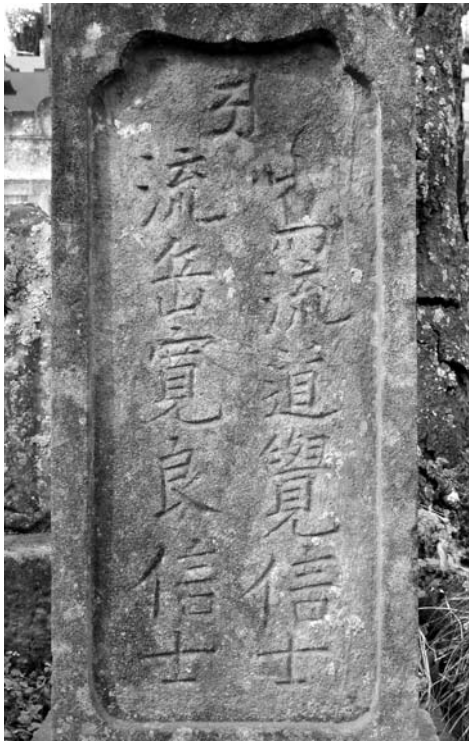 流道覺信士
流岳寛良信士